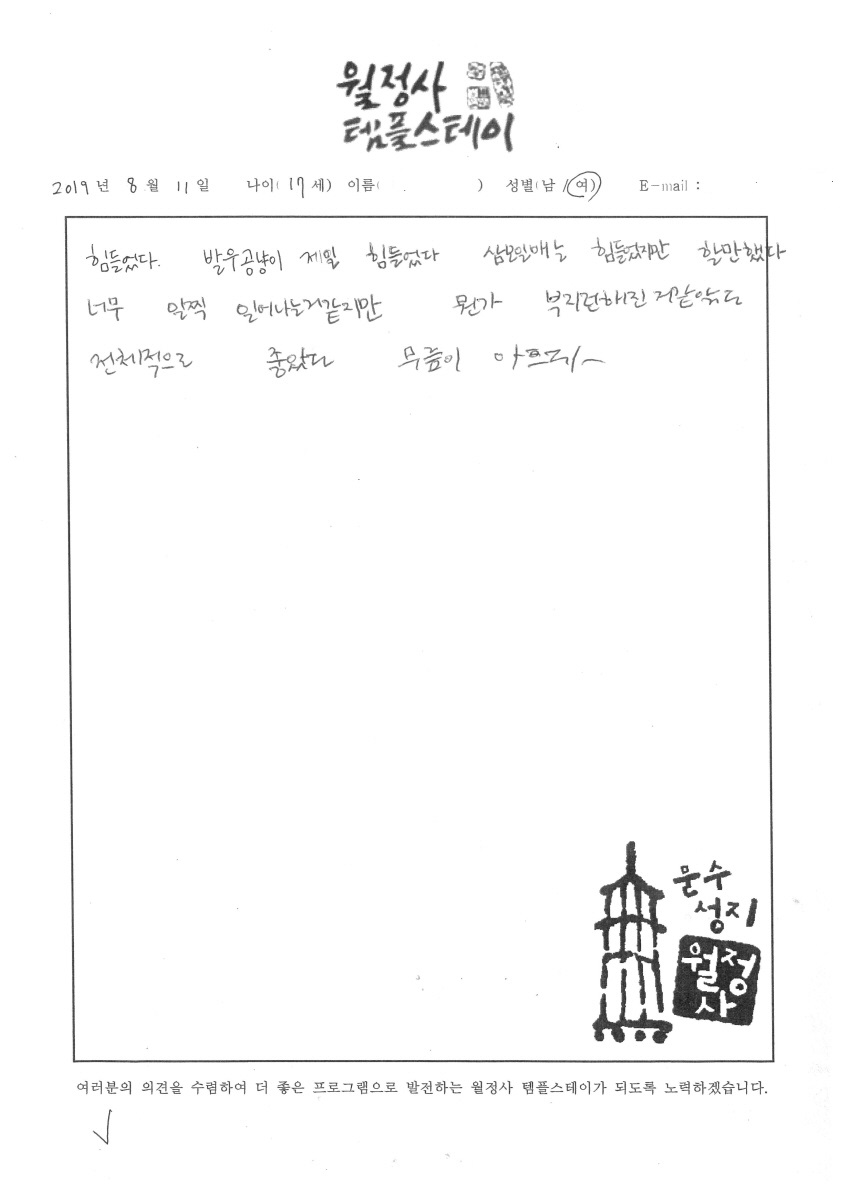 월정사
템플스테이
2019 년 8 월 11 일 나이( 17 세) 이름( ) 성별(남 / 여) E-mail :
힘들었다. 발우공냥이 제일 힘들었다 삼보일배는 힘들었지만 할만했다
너무 일찍 일어나는거같지만 뭔가 부지런해진 거같았다
전체적으로 좋았다 무릎이 아프다~
문수
성지
월정
사
여러분의 의견을 수렴하여 더 좋은 프로그램으로 발전하는 월정사 템플스테이가 되도록 노력하겠습니다.